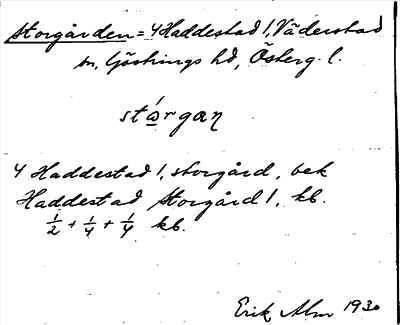 Storgården = 4 Haddestad 1, Väderstad
sn, Göstrings hd, Österg. l.
stǫ́rgaɳ
4 Haddestad 1, storgård, bek
Haddestad Storgård 1, kb.
1/2 + 1/4 + 1/4 kb.
Erik Alm 1930